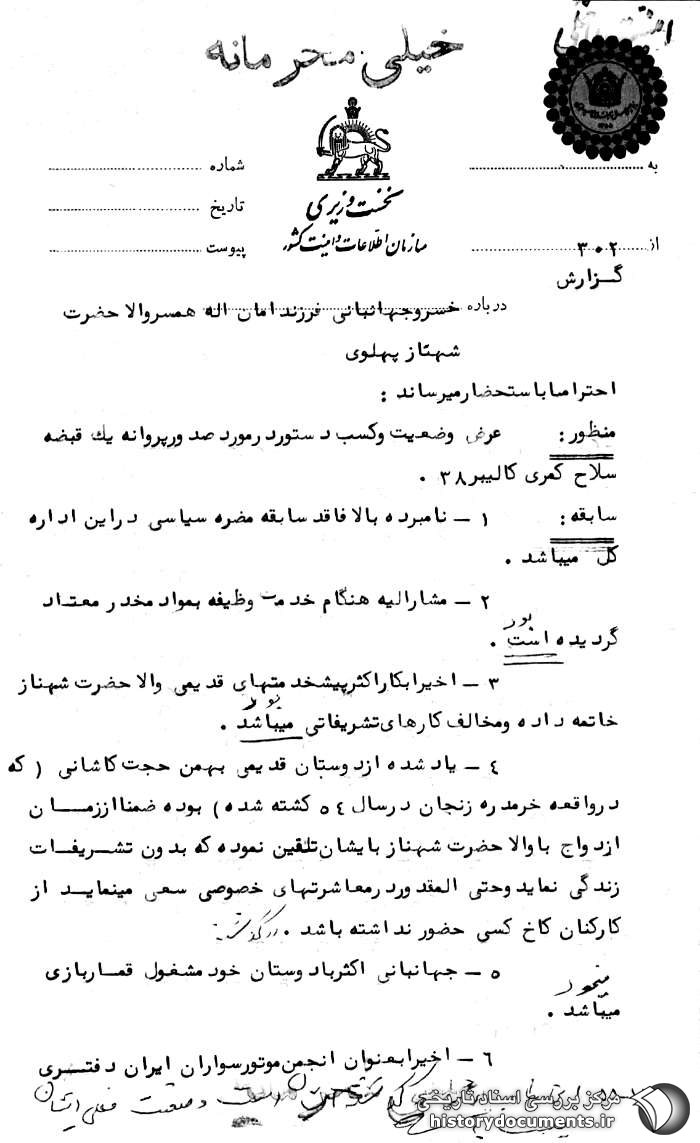 خیلی محرمانه
نخست وزیری
سازمان اطلاعات و امنیت کشور
به
شماره
تاریخ
از ۳۰۲
پیوست
گزارش
درباره خسرو جهانبانی فرزند امان اله همسر والا حضرت
شهناز پهلوی
احتراما باستحضار میرساند :
منظور : عرض وضعیت و کسب دستور در مورد صدور پروانه یك قبضه
سلاح کمری کالیبر ۳۸ .
سابقه : ۱ – نامبرده بالا فاقد سابقه مضره سیاسی در این اداره
کل میباشد .
۲ – مشارالیه هنگام خدمت وظیفه بمواد مخدر معتاد
بود
گردیده است .
۳ – اخیرا بکار اکثر پیشخدمتهای قدیمی والا حضرت شهناز
بود
خاتمه داده و مخالف کارهای تشریفاتی میباشد .
٤ – یاد شده از دوستان قدیمی بهمن حجت کاشانی ( که
در واقعه خرمدره زنجان در سال ٥٤ کشته شده ) بوده ضمنا از زمان
ازدواج با والا حضرت شهناز بایشان تلقین نموده که بدون تشریفات
زندگی نماید و حتی المقدور در معاشرتهای خصوصی سعی مینماید از
کارکنان کاخ کسی حضور نداشته باشد .
٥ – جهانبانی اکثر با دوستان خود مشغول قمار بازی
مینمود
میباشد .
٦ – اخیرا بعنوان انجمن موتور سواران ایران دفتری
است و صنعت فعلی ایشان
مرکز بررسی اسناد تاریخی
historydocuments.ir